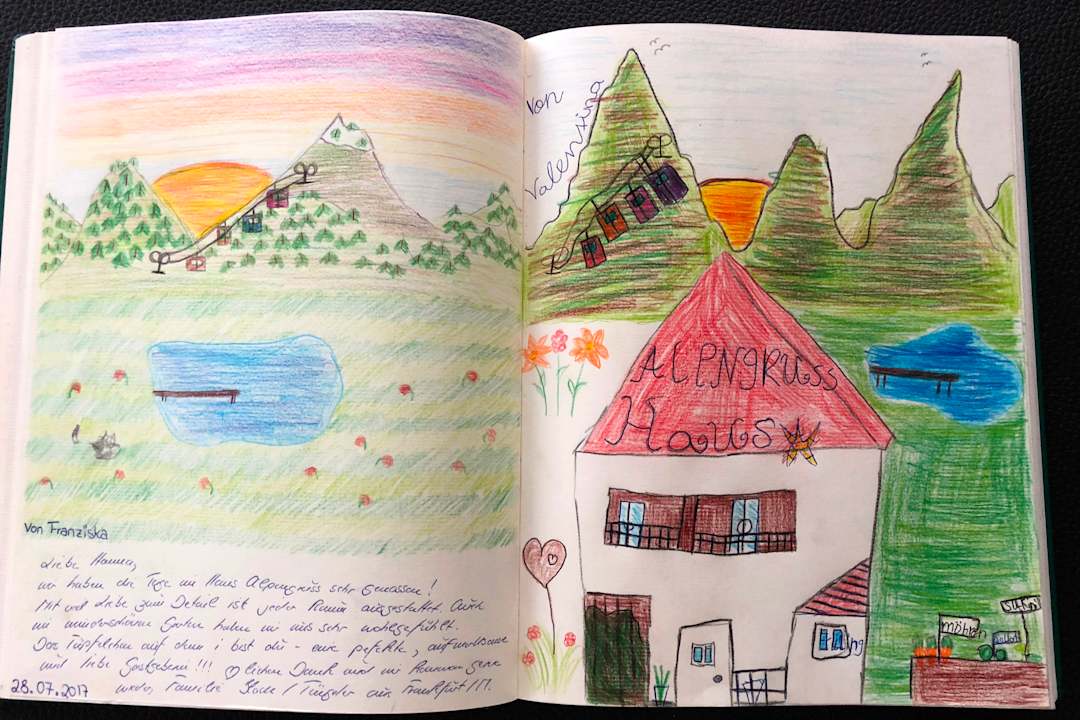 von Franziska
Liebe Hanna,
wir haben die Tage im Haus Alpengruss sehr genossen!
Mit viel Liebe zum Detail ist jeder Raum ausgestattet. Auch
im wunderschönen Garten haben wir uns sehr wohlgefühlt.
Das Tüpfelchen auf dem i bist du - eine perfekte, aufmerksame
und liebe Gastgeberin!!! ♡lichen Dank und wir kommen gerne
wieder, Familie / aus Frankfurt/M.
28.07.2017
Von
Valentina
AlPNGRUSS
Haus
möhren